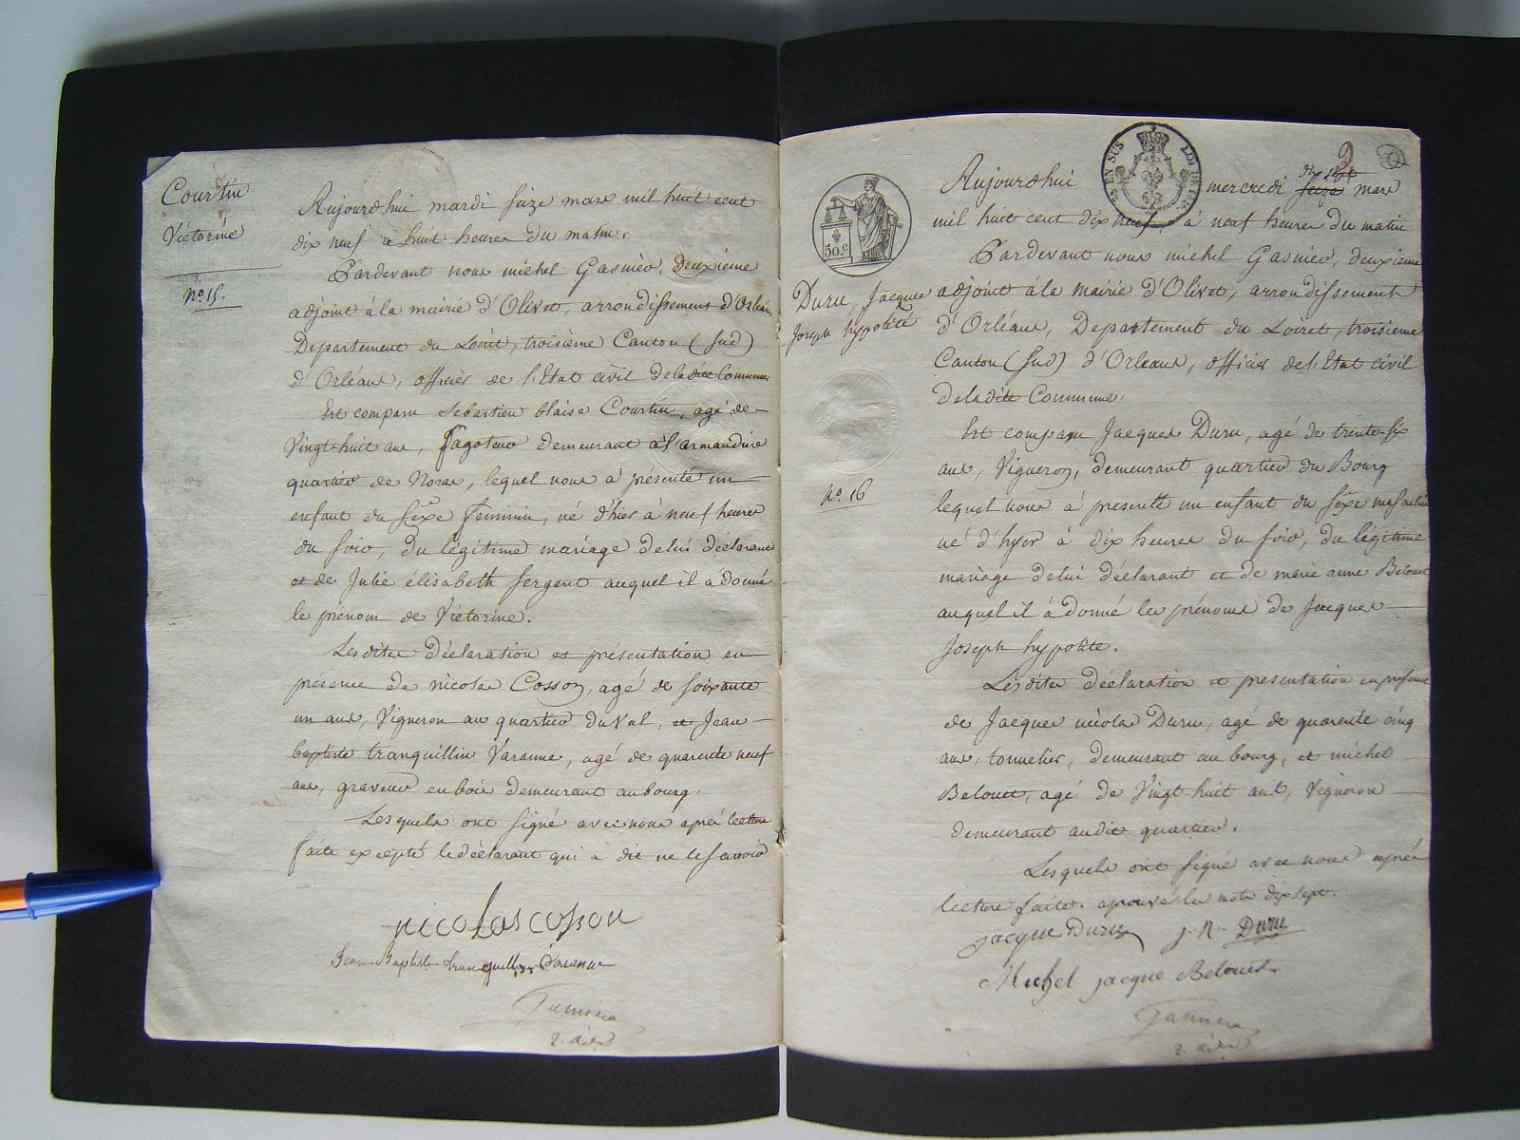 Courtin
Victorine
No. 15.
Aujourd'hui mardi seize mars mil huit cent
dix neuf à huit heures du matin.
Pardevant nous michel Gasnier, Deuxieme
adjoint à la mairie d'Olivet, arrondissement d'Orléans
Departement du Loiret, troisième Canton (Sud)
d'Orléans, officier de l'Etat civil de ladite Commune
Est comparu Sebastien blaise Courtin, agé de
Vingt-huit ans, fagoteur demeurant à l'armandine
quartier de Noras, lequel nous à présenté un
enfant du sexe feminin, né d'hier à neuf heures
du soir, du légitime mariage de lui déclarant
et de Julie élisabeth sergent auquel il à donné
le prénom de Victorine.
Lesdites déclaration et présentation en
présence de nicolas Cosson, agé de soixante
un ans, Vigneron au quartier du Val, et Jean
baptiste tranquillin Varanne, agé de quarente neuf
ans, graveur en bois demeurant au bourg.
Lesquels ont signé avec nous après lecture
faite excepté le déclarant qui à dit ne le savoir
nicolas cosson
Jean Baptiste tranquillin Varanne
Gasnier
2. adj
EN SUS
30.c
Duru, Jacques
Joseph hypolite
No. 16
2
Aujourd'hui mercredi dix sept seize mars
mil huit cent dix neuf à neuf heures du matin
Pardevant nous michel Gasnier, deuxieme
adjoint à la mairie d'Olivet, arrondissement
d'Orléans, Departement du Loiret, troisieme
Canton (Sud) d'Orleans, officier de l'Etat civil
de ladite Commune.
Est comparu Jacques Duru, agé de trente-six
ans, Vigneron, demeurant quartier du Bourg
lequel nous à presenté un enfant du sexe masculin
né d'hyer à dix heures du soir, du légitime
mariage de lui déclarant et de marie anne Belouet
auquel il à donné les prénoms de Jacques
Joseph hypolite.
Lesdites déclaration et presentation en présence
de Jacques nicolas Duru, agé de quarente cinq
ans, tonnelier, demeurant au bourg, et michel
Belouet, agé de Vingt huit ans, Vigneron
demeurant audit quartier.
Lesquels ont signé avec nous après
lecture faite. aprouvé les mots dix sept.
jacque Duru j. N. Duru
Michel jacque Belouet
Gasnier
2. adj